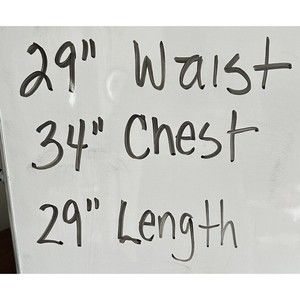 29" Waist
34" Chest
29" Length